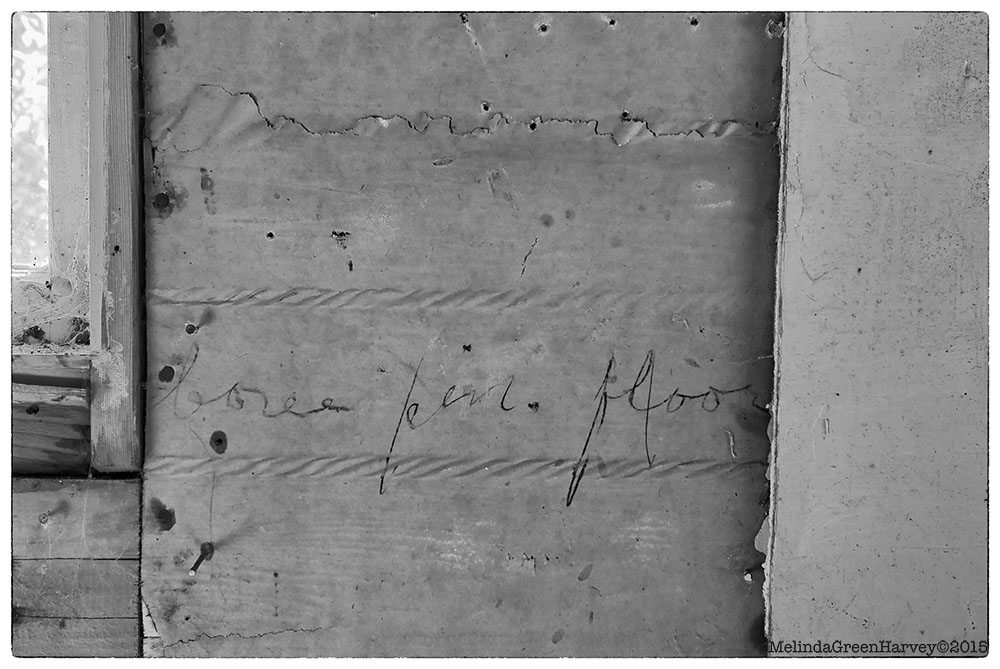 pin. floor
MelindaGreenHarvey©2015